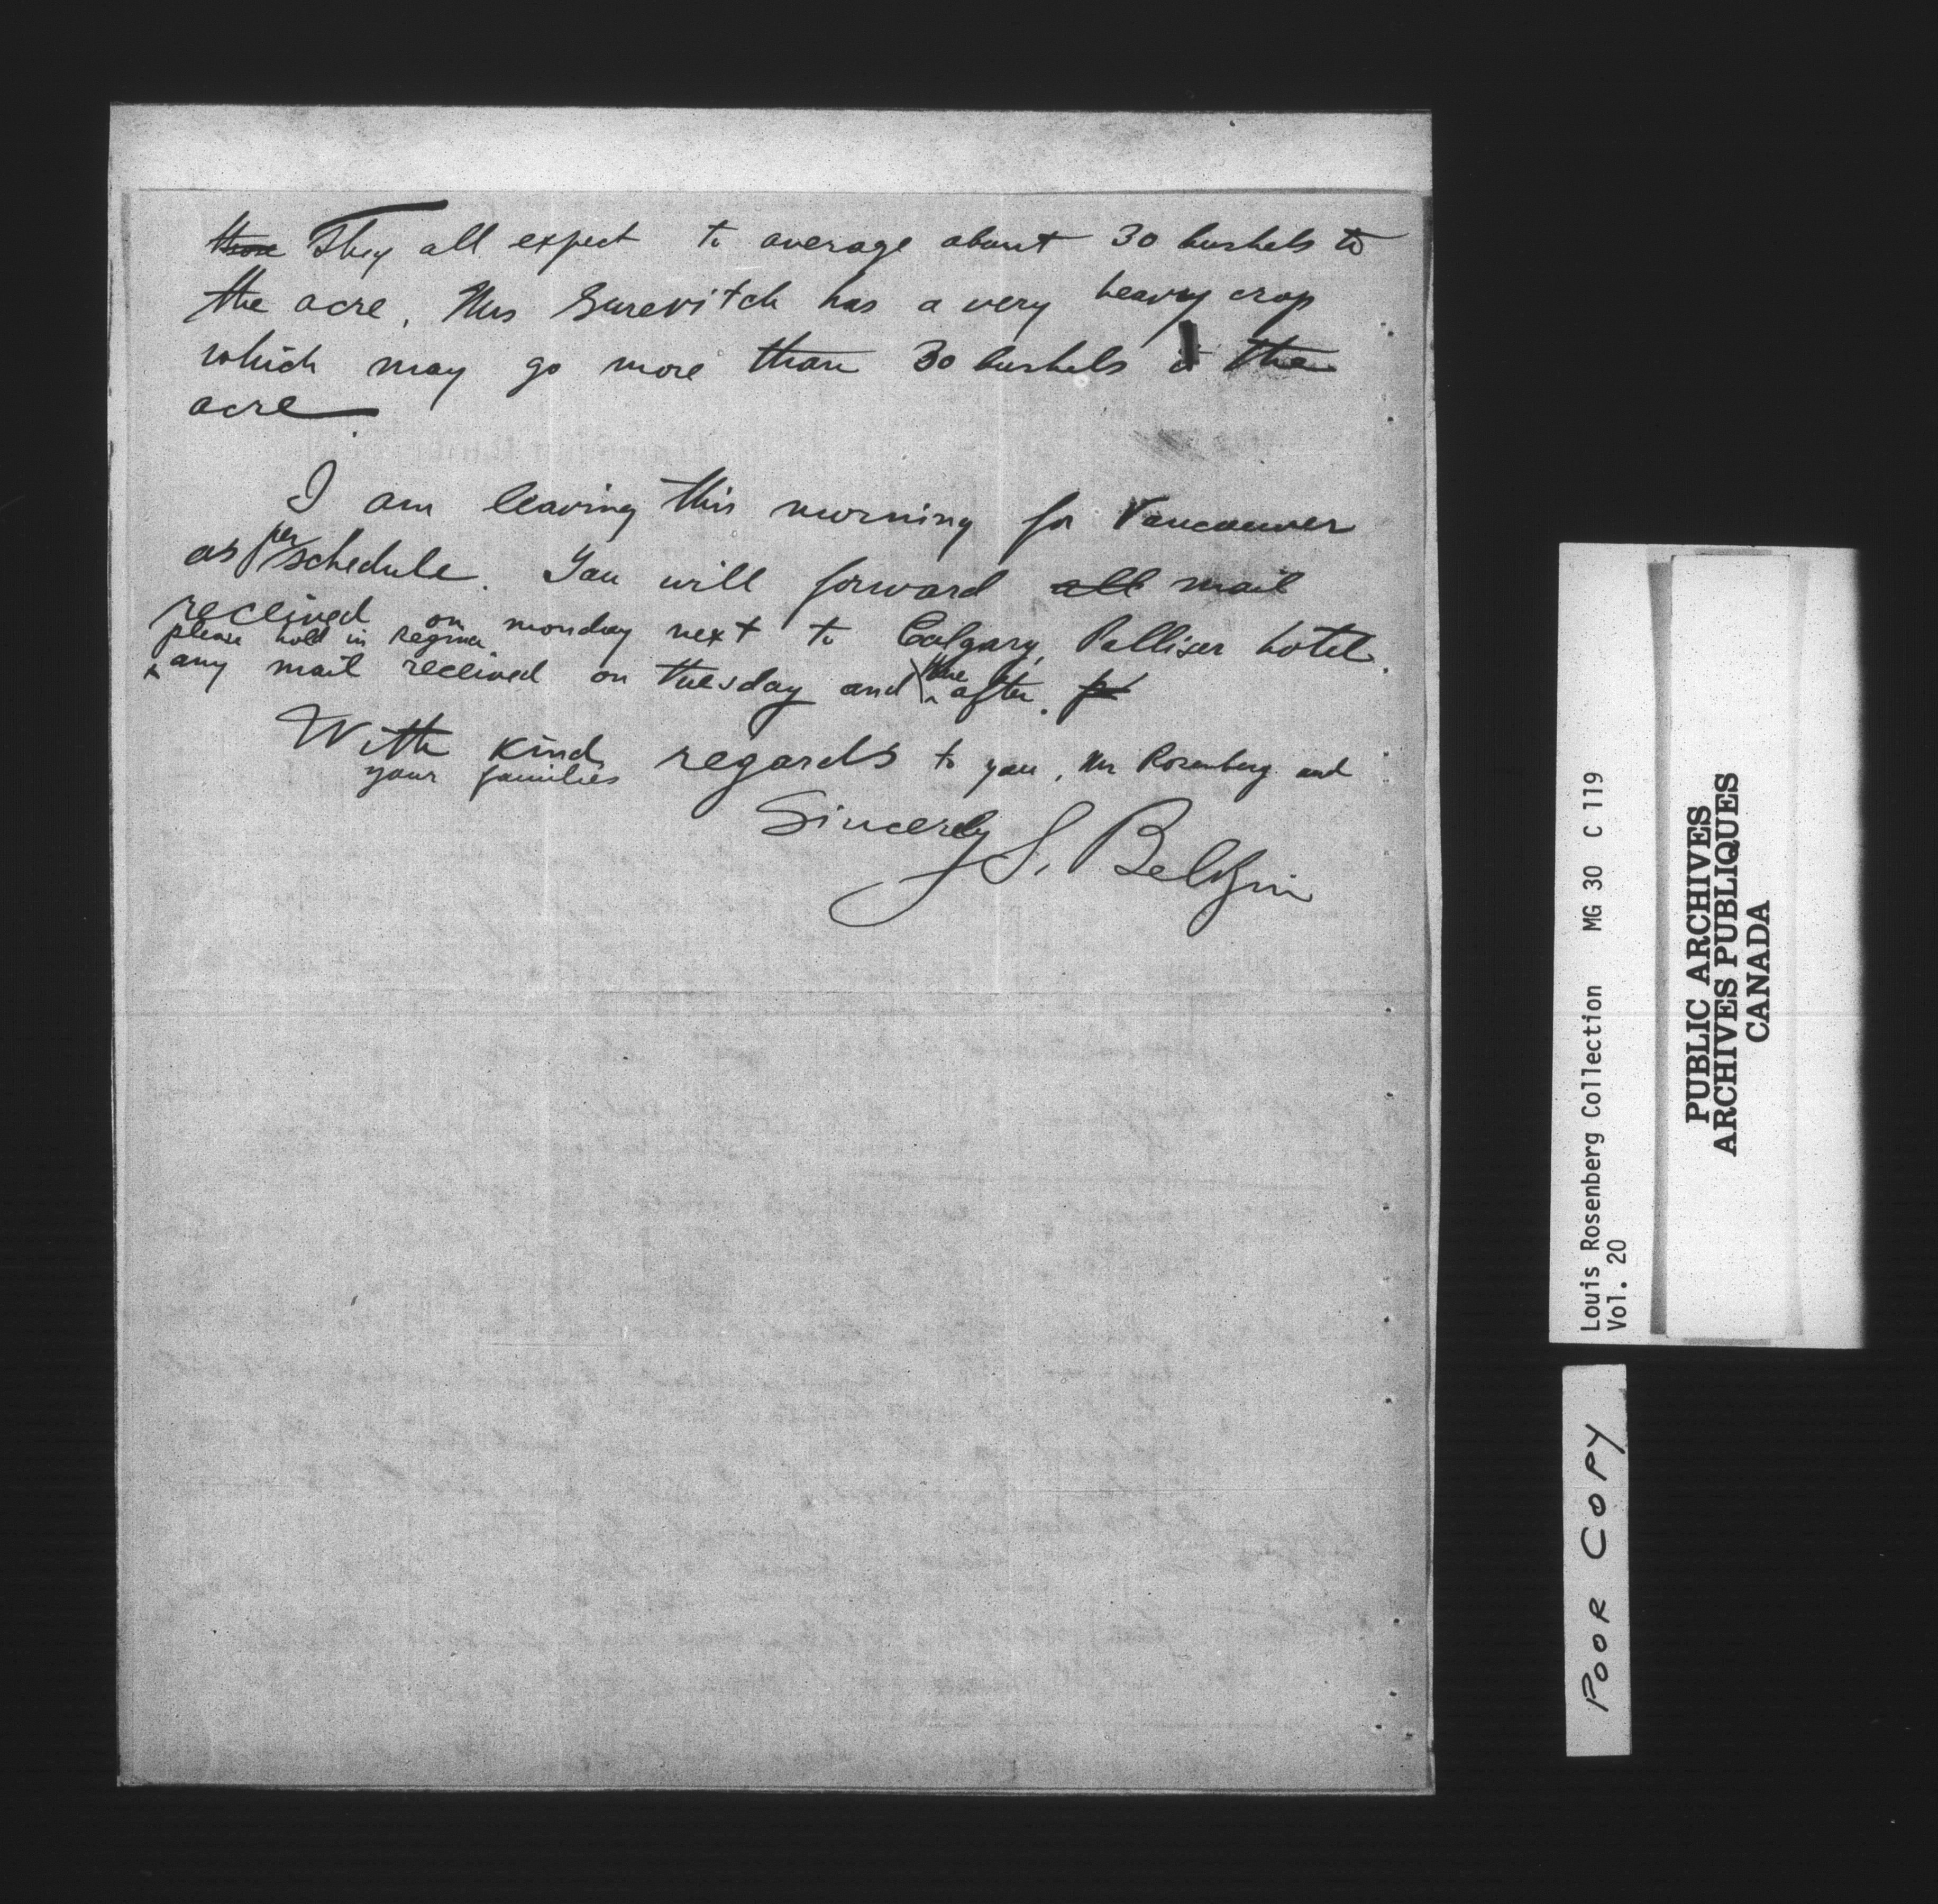 They all expect to average about 30 bushels to
the acre. Mrs Gurevitch has a very heavy crop
which may go more than 30 bushels to the
acre.
I am leaving this morning for Vancouver
as per schedule. You will forward all mail
received on monday next to Calgary, Palliser hotel.
please hold in Regina
any mail received on Tuesday and the after.
With kind regards to you, Mr Rosenberg and
your families
Sincerely S. Belkin
Louis Rosenberg Collection MG 30 C 119
Vol. 20
PUBLIC ARCHIVES
ARCHIVES PUBLIQUES
CANADA
POOR COPY